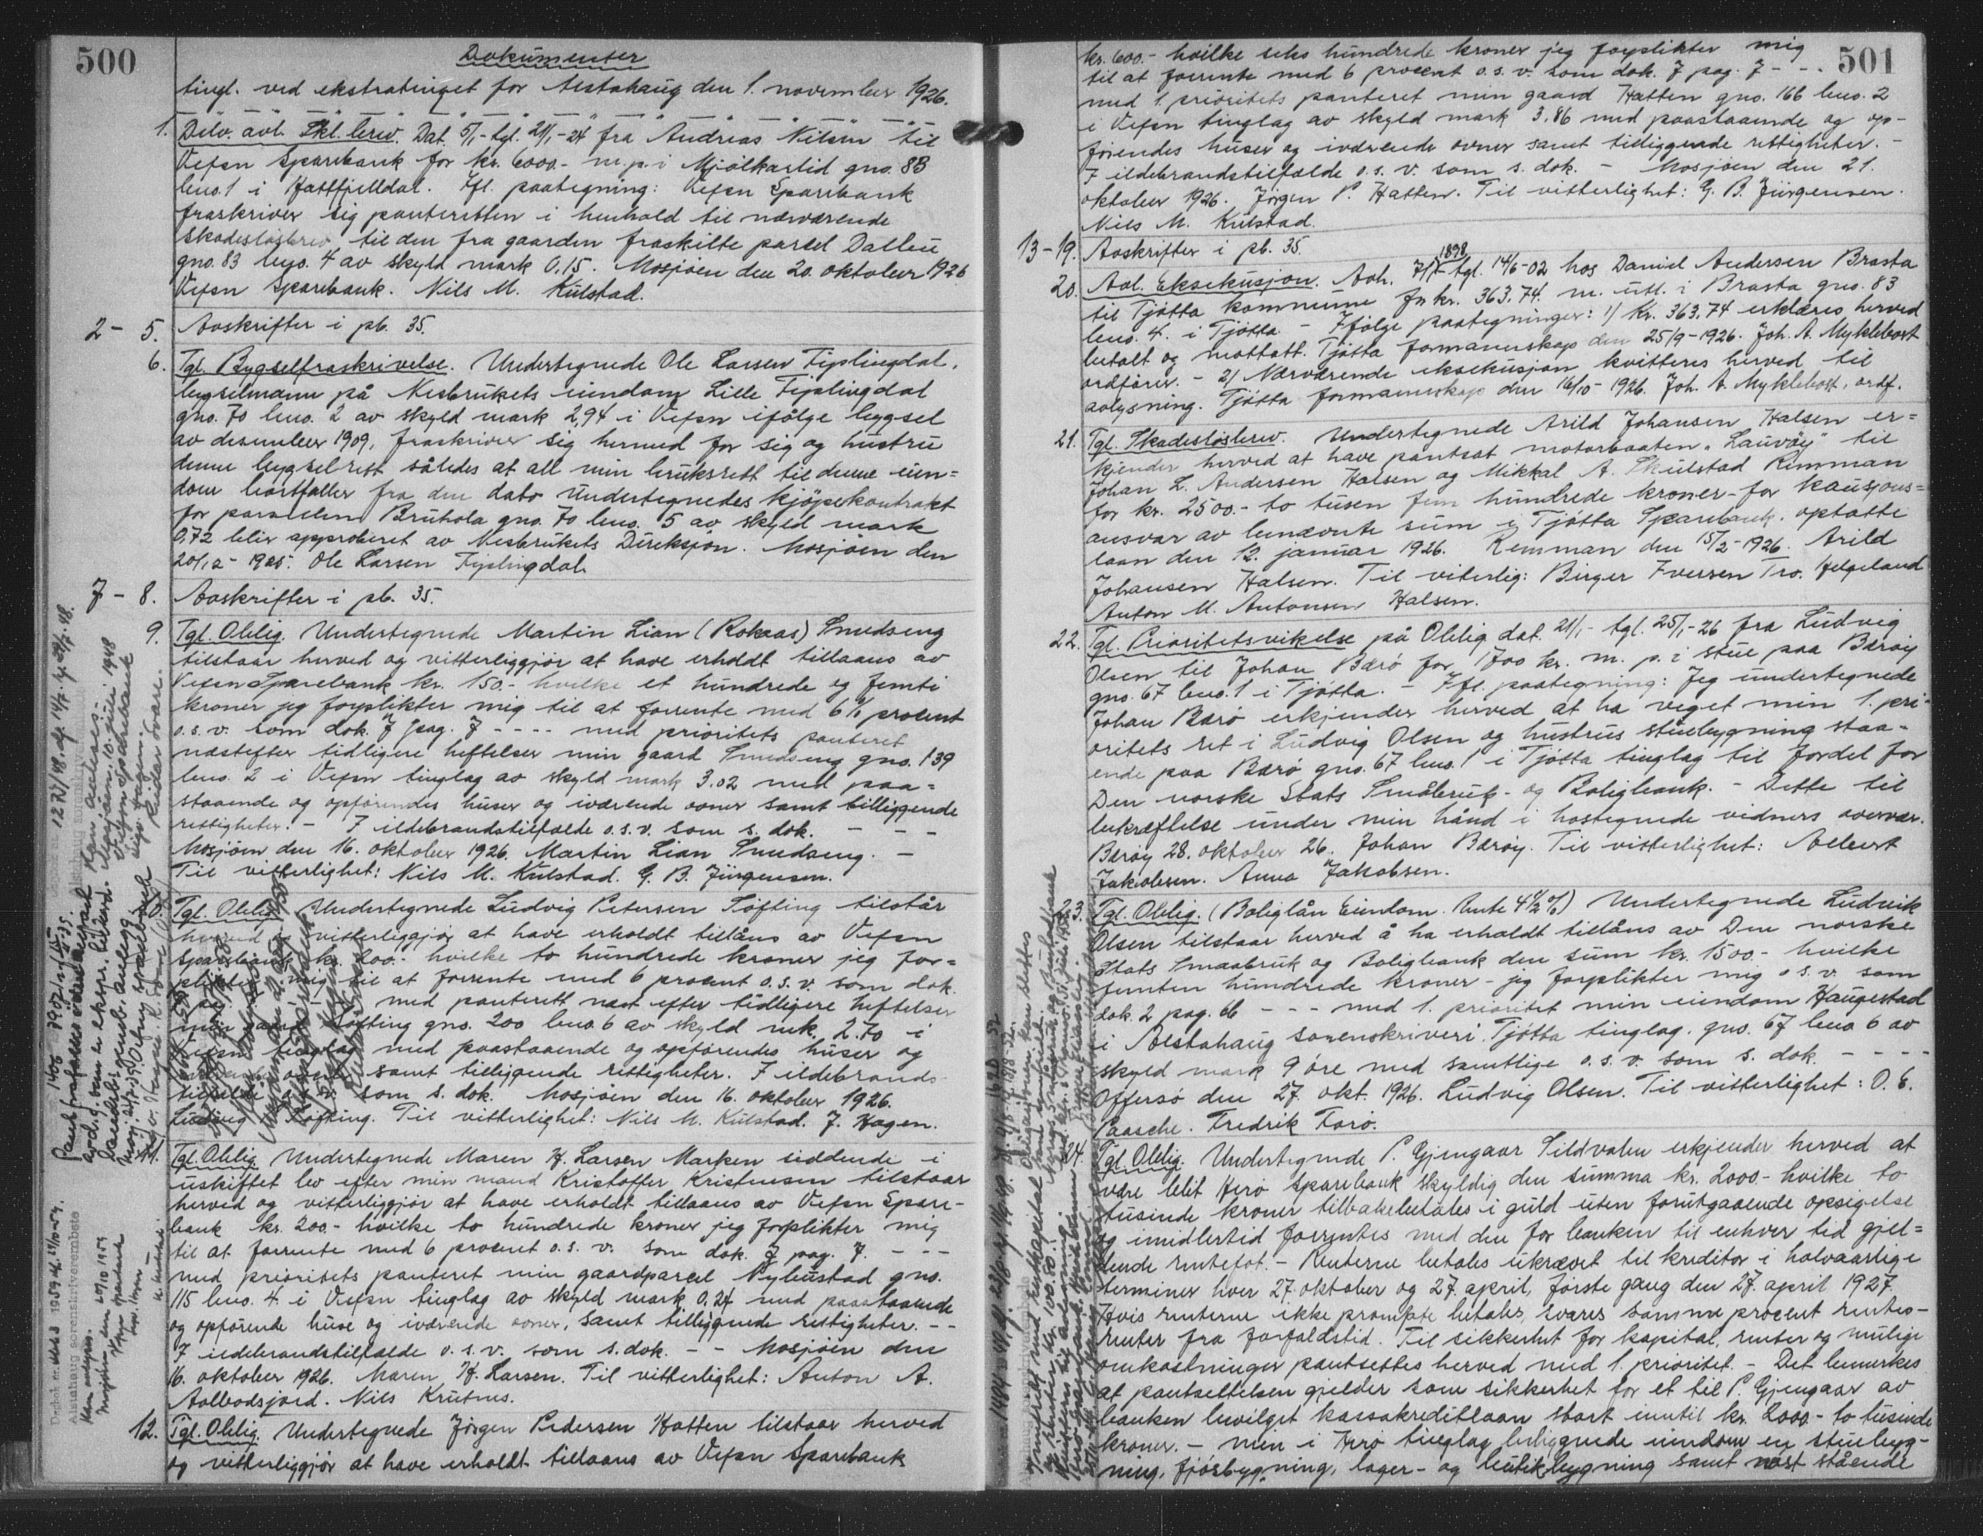 500
Dokumenter
tingl. ved ekstratinget for Alstahaug den 1. november 1926.
1. Delv. avl. Skl. brev. Dat. 5/1 - tgl. 21/1-24 fra Andreas Nilsen til
Vefsn Sparebank for kr. 6000.- m. p. i Mjölkarlid gno. 83
bno. 1 i Hatfjelldal. Ifl. paategning: Vefsn Sparebank
fraskriver sig panteretten i henhold til nærværende
skadeslösbrev til den fra gaarden fraskilte parsel Dalbu
gno. 83 bno. 4 av skyld mark 0,15. Mosjöen den 20. oktober 1926
Vefsn Sparebank. Nils M. Kulstad.
2 - 5. Avskrifter i pb. 35.
6. Tgl. Bygselfraskrivelse. Undertegnede Ole Larsen Fiplingdal,
bygselmann på Nesbrukets eiendom Lille Fiplingdal
gno. 70 bno. 2 av skyld mark 2,94 i Vefsn ifölge bygsel
av desember 1909, fraskriver sig hermed for sig og hustru
denne bygselrett således at all min bruksrett til denne eien=
dom bortfaller fra den dato undertegnedes kjöpekontrakt
for parsellen Bruhola gno. 70 bno. 5 av skyld mark
0,72 blir approbert av Nesbrukets Direksjon. Mosjöen den
20/12 - 1925. Ole Larsen Fiplingdal.
7 - 8. Avskrifter i pb. 35.
9. Tgl. Oblig. Undertegnede Martin Lian (Rokaas) Smedseng
tilstaar herved og vitterliggjör at have erholdt tillaans av
Vefsn Sparebank kr. 150.- hvilke et hundrede og femti
kroner jeg forplikter mig til at forrente med 6 ½ procent
o.s.v. som dok. 7 pag. 7 - - - - med prioritets panteret
næstefter tidligere heftelser min gaard Smedseng gno. 139
bno. 2 i Vefsn tinglag av skyld mark 3.02 med paa=
staaende og opförendes huser og iværende ovner samt tilliggende
rettigheter. - I ildebrandstilfælde o.s.v. som s. dok. - - -
Mosjöen den 16. oktober 1926. Martin Lian Smedseng. -
Til vitterlighet: Nils M. Kulstad. G. B. Jürgensen.
Tgl. Oblig. Undertegnede Ludvig Petersen Söfting tilstår
herved og vitterliggjör at have erholdt tillåns av Vefsn
Sparebank kr. 200.- hvilke to hundrede kroner jeg for=
plikter mig til at forrente med 6 procent o.s.v. som dok.
med panterett næst efter tidligere heftelser
min gaard Söfting gno. 200 bno. 6 av skyld mk. 2.70 i
Vefsn tinglag med paastaaende og opförendes huser og
iværende ovner samt tilliggende rettigheter. I ildebrands
tilfælde o.s.v. som s. dok. Mosjöen den 16. oktober 1926.
Ludvig Söfting. Til vitterlighet: Nils M. Kulstad. J. Hagen.
11. Tgl. Oblig. Undertegnede Maren H. Larsen Marken siddende i
uskiftet bo efter min mand Kristoffer Kristensen tilstaar
herved og vitterliggjör at have erholdt tillaans av Vefsn Spare-
bank kr. 200.- hvilke to hundrede kroner jeg forplikter mig
til at forrente med 6 procent o.s.v. som dok. 7 pag. 7. - - -
med prioritets panteret min gaardparcel Nybustad gno.
115 bno. 4. i Vefsn tinglag av skyld mark 0.24 med paastaaende
og opförende huse og iværende ovner, samt tilliggende rettigheter. - -
I ildebrandstilfælde o.s.v. som s. dok. - - Mosjöen den
16. oktober 1926. Maren H. Larsen. Til vitterlighet: Anton A.
Aalbodsjord. Nils Krutnes.
12. Tgl. Oblig. Undertegnede Jörgen Pedersen Hatten tilstaar herved
og vitterliggjör at have erholdt tillaans av Vefsn Sparebank
501
kr. 600.- hvilke seks hundrede kroner jeg forplikter mig
til at forrente med 6 procent o.s.v. som dok. 7 pag. 7 - - -
med 1. prioritets panteret min gaard Hatten gno. 166 bno. 2
i Vefsn tinglag av skyld mark 3.86 med paastaaende og op-
förendes huser og iværende ovner samt tilliggende rettigheter. -
I ildebrandstilfælde o.s.v. som s. dok. - Mosjöen den 21.
oktober 1926. Jörgen P. Hatten. Til vitterlighet: G. B. Jürgensen.
Nils M. Kulstad.
13-19. Avskrifter i pb. 35.
20. Avl. Eksekusjon. Avh. 7/1 1898 - tgl. 14/6-02 hos Daniel Andersen Brasta
til Tjötta kommune for kr. 363.74. m. utl. i Brasta gno. 83
bno. 4. i Tjötta - Ifölge paategninger: 1/ Kr. 363.74 erklæres herved
betalt og mottatt. Tjötta formannskap den 25/9-1926. Joh. A. Myklebost
ordförer. - 2/ Nærværende eksekusjon kvitteres herved til
avlysning. Tjötta formannskap den 16/10-1926. Joh. A. Myklebost, ordf.
21. Tgl. Skadeslösbrev. Undertegnede Arild Johansen Halsen er=
kjender herved at have pantsat motorbaaten "Lauvöy" til
Johan L. Andersen Halsen og Mikkal A. Skeilstad Remman
for kr. 2500.- to tusen fem hundrede kroner - for kausjons=
ansvar av benævnte sum i Tjötta Sparebank, optatte
laan den 12. januar 1926. Remman den 15/2-1926. Arild
Johansen Halsen. Til viterlig: Birger Iversen Tro. Helgeland
Anton M. Antonsen Halsen.
22. Tgl. Prioritetsvikelse på Oblig. dat. 21/1 - tgl. 25/1-26 fra Ludvig
Olsen til Johan Bærö for 1700 kr. m. p. i stue paa Bæröy
gno. 67 bno. 1 i Tjötta. - Ifl. paategning: Jeg undertegnede
Johan Bærö erkjender herved at ha veget min 1. pri-
oritets ret i Ludvig Olsen og hustrus stuebygning staa-
ende paa Bærö gno. 67 bno. 1 i Tjötta tinglag til fordel for
Den norske Stats Småbruk- og Boligbank. - Dette til
bekræftelse under min hånd i hostegnede vidners overvær.
Bæröy 28. oktober 26. Johan Bæröy. Til vitterlighet: Albert
Jakobsen. Anna Jakobsen.
23. Tgl. Oblig. (Boliglån Eiendom. Rente 4½%) Undertegnede Ludvik
Olsen tilstaar herved å ha erholdt tillåns av Den norske
Stats Smaabruk og Boligbank den sum kr. 1500.- hvilke
femten hundrede kroner - jeg forplikter mig o.s.v. som
dok. 2 pag. 66 - - - med 1. prioritet min eiendom Haugestad
i Alstahaug sorenskriveri. Tjötta tinglag. gno. 67 bno 6 av
skyld mark 9 öre med samtlige o.s.v. som s. dok. - - - -
Offersö den 27. okt. 1926. Ludvig Olsen. Til vitterlighet: O. E.
Paasche. Fredrik Forö.
24. Tgl. Oblig. Undertegnede P. Gjengaar Sildvalen erkjender herved at
være blit Herö Sparebank skyldig den summa kr. 2000.- hvilke to
tusinde kroner tilbakebetales i guld uten forutgaaende opsigelse
og imidlertid forrentes med den for banken til enhver tid gjel=
dende rentefot. - Renterne betales ukrævet til kreditor i halvaarlige
terminer hver 27. oktober og 27. april, förste gang den 27. april 1927.
Hvis renterne ikke promte betales, svares samme procent rentes-
renter fra forfaldstid. Til sikkerhet for kapital, renter og mulige
omkostninger pantsettes herved med 1. prioritet. - Det bemerkes
at pantsettelsen gjelder som sikkerhet for et til P. Gjengaar av
banken bevilget kassakreditlaan stort inntil kr. 2000.- to tusinde
kroner. - min i Herö tinglag beliggende eiendom en stuebyg-
ning, fjösbygning, lager- og butikbygning samt nöst stående